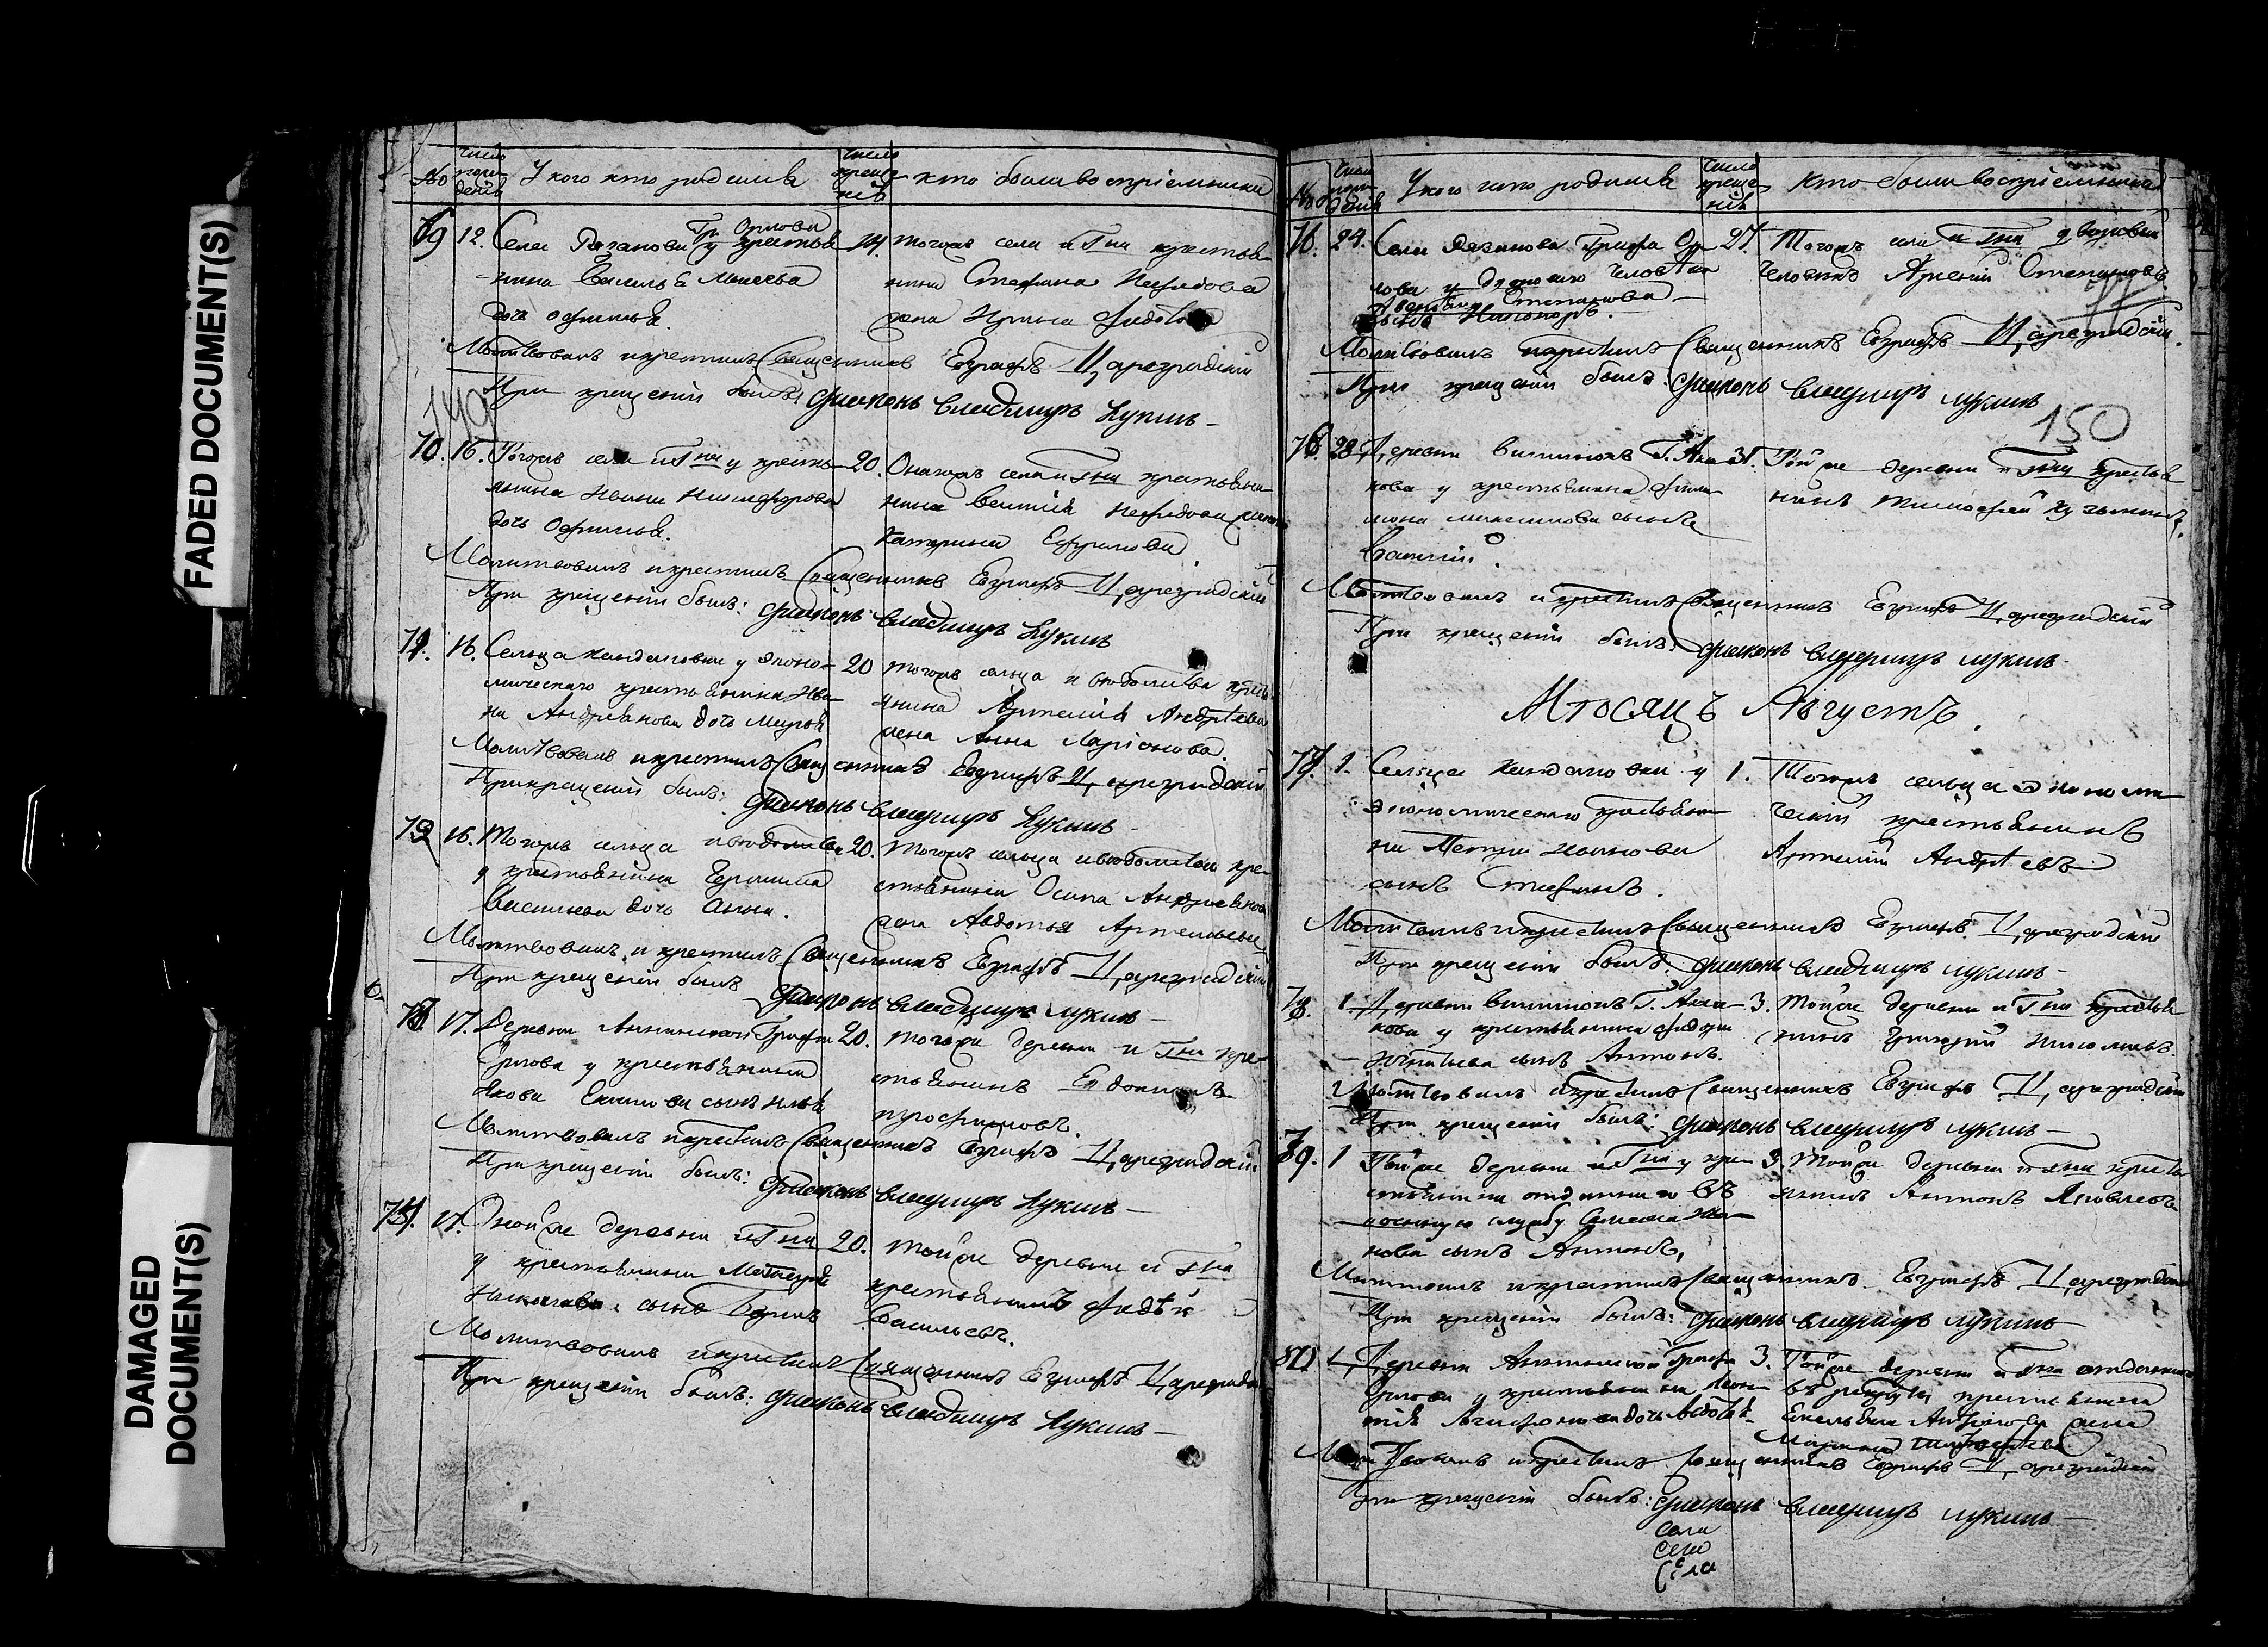 FADED DOCUMENT(S)
DAMAGED
DOCUMENT(S)
№
число
рож
денія
У кого кто родился
число
креще
нія
кто были воспріемники
69
12. Села Рязанова Гр. Орлова у крестья
нина Василья Моисеева
дочь Офимья.
14. тогожъ села и Гна крестья
нина Стефана Нефедова
жена Ирина Федотова
Молитвовалъ и крестилъ Священникъ Евграфъ Цареградскій
При крещеніи былъ: Діаконъ Владимиръ Лукинъ
149
70. 16. Тогожъ села и Гна у кресть
янина Ивана Никифорова
дочь Офимья.
20. Оногожъ села и Гна крестьяни
нина Нефедова жена
Катерина Ефимова
Молитвовалъ и крестилъ Священникъ Евграфъ Цареградскій
При крещеніи былъ: Діаконъ Владимиръ Лукинъ
71. 16. Сельца у эконо
мическаго крестьянина Ива
на Андреянова дочь Марья
20 тогожъ сельца и вѣдомства кресть
янина Артемія Андрѣева
жена Анна Ларіонова
Молитвовалъ и крестилъ Священникъ Евграфъ Цареградскій
При крещеніи былъ: Діаконъ Владимиръ Лукинъ
72 16. Тогожъ сельца и вѣдомства
у крестьянина
Васильева дочь Анна.
20. тогожъ сельца и вѣдомства кре
стьянина Осипа Андреянова
жена Авдотья Артемьева
Молитвовалъ и крестилъ Священникъ Евграфъ Цареградскій
При крещеніи былъ Діаконъ Владимиръ Лукинъ
73. 17. Деревни Графа
Орлова у крестьянина
Якова Екимова сынъ Илья
20. тойже деревни и Гна кре
стьянинъ Евдокимъ
Молитвовалъ и крестилъ Священникъ Евграфъ Цареградскій
При крещеніи былъ: Діаконъ Владимиръ Лукинъ
74. 17. Онойже деревни и Гна
у крестьянина
сынъ
20. тойже деревни и Гна
крестьянинъ
Васильевъ.
Молитвовалъ и крестилъ Священникъ Евграфъ Цареградскій
При крещеніи былъ: Діаконъ Владимиръ Лукинъ
№
число
рож
денія
У кого кто родился
число
креще
нія
Кто были воспріемники
24. Села Рязанова Графа Ор
лова у двороваго человѣка
Степанова
сынъ Никаноръ.
27. Тогожъ села и Гна дворовый
человѣкъ Степановъ
Молитвовалъ и крестилъ Священникъ Евграфъ Цареградскій.
При крещеніи былъ: Діаконъ Владимиръ Лукинъ
150
76. 28 Деревни Г. 
кова у крестьянина Фили
мона сынъ
Василій.
31. Тойже деревни и Гна крестья
нинъ Тимофей Кузьминъ.
Молитвовалъ и крестилъ Священникъ Евграфъ Цареградскій
При крещеніи былъ: Діаконъ Владимиръ Лукинъ
Мѣсяцъ Августъ.
77. 1. Сельца у
экономическаго крестьяни
на Петра Иванова
сынъ Стефанъ.
1. Тогожъ сельца экономи
ческій крестьянинъ
Артемій Андрѣевъ
Молитвовалъ и крестилъ Священникъ Евграфъ Цареградскій
При крещеніи былъ: Діаконъ Владимиръ Лукинъ
78. 1 Деревни Г.
кова у крестьянина Федора
Игнатьева сынъ Антонъ.
3. тойже деревни и Гна крестья
нинъ Григорій Николаевъ.
Молитвовалъ и крестилъ Священникъ Евграфъ Цареградскій
При крещеніи былъ: Діаконъ Владимиръ Лукинъ
79. 1 Тойже деревни и Гна у кре
стьянина отданнаго въ
военную службу Семена Ива
нова сынъ Антонъ,
3. Тойже деревни и Гна кресть
янинъ Антонъ Яковлевъ
Молитвовалъ и крестилъ Священникъ Евграфъ Цареградскій
При крещеніи былъ: Діаконъ Владимиръ Лукинъ
80 1 Деревни Графа
Орлова у крестьянина Леон
тія дочь Авдотья
3. Тойже деревни и Гна отданнаго
въ рекруты крестьянина
Емельяна жена
Марина
Молитвовалъ и крестилъ Священникъ Евграфъ Цареградскій
При крещеніи былъ: Діаконъ Владимиръ Лукинъ
Села
Село
Села